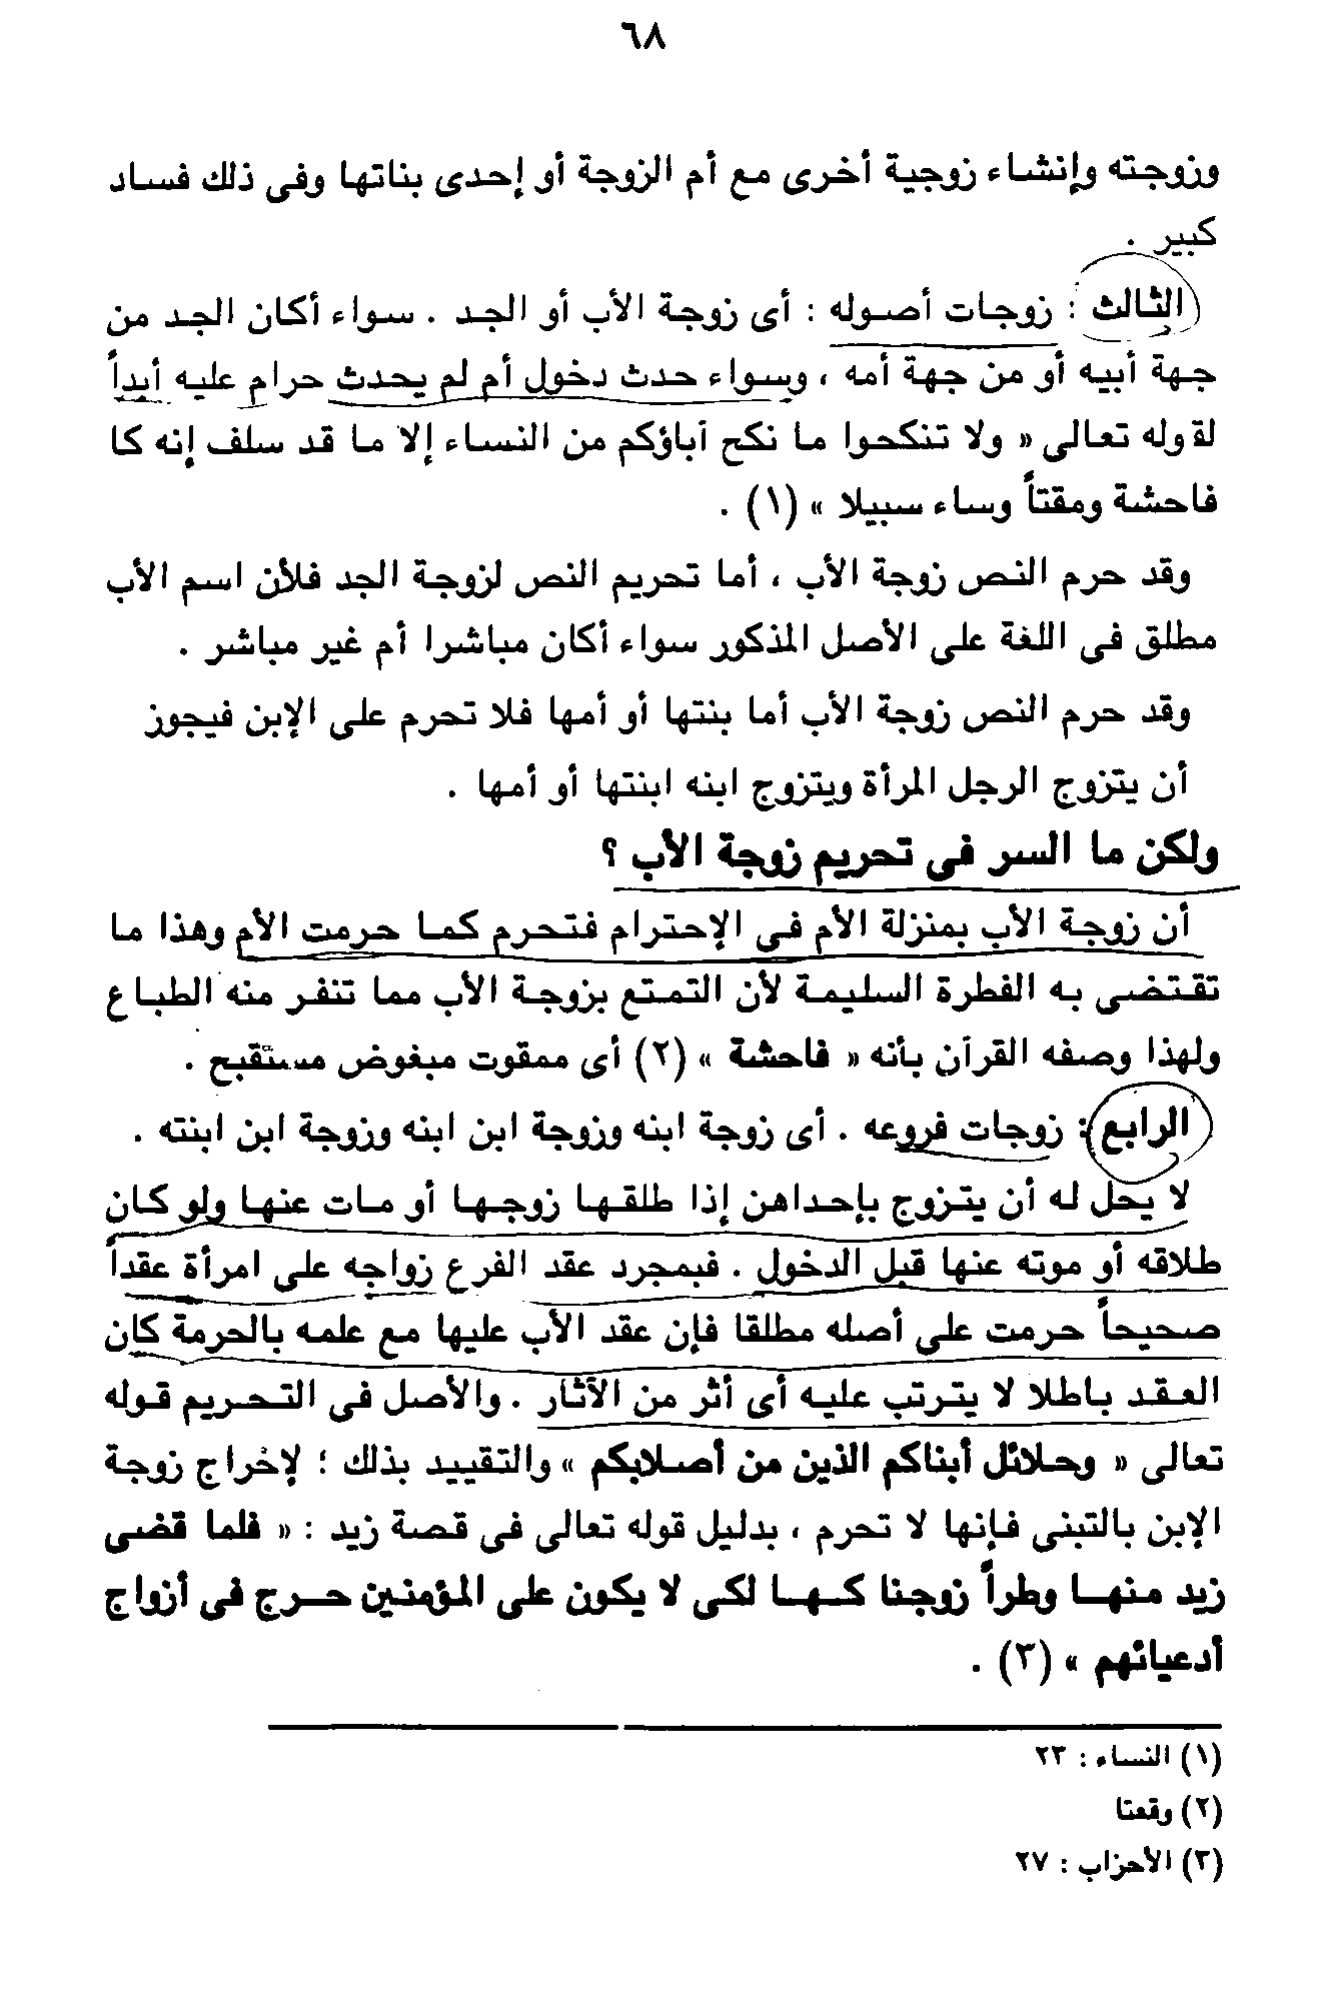 ٦٨
وزوجته وإنشاء زوجية أخرى مع أم الزوجة أو إحدى بناتها وفى ذلك فساد
كبير .
الثالث : زوجات أصوله : أى زوجة الأب أو الجد . سواء أكان الجد من
جهة أبيه أو من جهة أمه ، وسواء حدث دخول أم لم يحدث حرام عليه أبداً
لقوله تعالى « ولا تنكحوا ما نكح آباؤكم من النساء إلا ما قد سلف إنه كا
فاحشة ومقتاً وساء سبيلا » (١) .
وقد حرم النص زوجة الأب ، أما تحريم النص لزوجة الجد فلأن اسم الأب
مطلق فى اللغة على الأصل المذكور سواء أكان مباشرا أم غير مباشر .
وقد حرم النص زوجة الأب أما بنتها أو أمها فلا تحرم على الإبن فيجوز
أن يتزوج الرجل المرأة ويتزوج ابنه ابنتها أو أمها .
ولكن ما السر فى تحريم زوجة الأب ؟
أن زوجة الأب بمنزلة الأم فى الإحترام فتحرم كما حرمت الأم وهذا ما
تقتضى به الفطرة السليمة لأن التمتع بزوجة الأب مما تنفر منه الطباع
ولهذا وصفه القرآن بأنه « فاحشة » (٢) أى ممقوت مبغوض مستقبح .
الرابع : زوجات فروعه . أى زوجة ابنه وزوجة ابن ابنه وزوجة ابن ابنته .
لا يحل له أن يتزوج بإحداهن إذا طلقها زوجها أو مات عنها ولو كان
طلاقه أو موته عنها قبل الدخول . فبمجرد عقد الفرع زواجه على امرأة عقداً
صحيحاً حرمت على أصله مطلقا فإن عقد الأب عليها مع علمه بالحرمة كان
العقد باطلا لا يترتب عليه أى أثر من الآثار . والأصل فى التحريم قوله
تعالى « وحلائل أبناكم الذين من أصلابكم » والتقييد بذلك ؛ لإخراج زوجة
الإبن بالتبنى فإنها لا تحرم ، بدليل قوله تعالى فى قصة زيد : « فلما قضى
زيد منها وطراً زوجنا كها لكى لا يكون على المؤمنين حرج فى أزواج
أدعيائهم » (٣) .
(١) النساء : ٢٣
(٢) وقعتا
(٣) الأحزاب : ٢٧